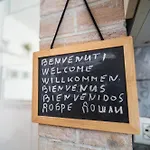 BENVENUTI
WELCOME
WILLKOMMEN
BIENVENUS
BIENVENIDOS